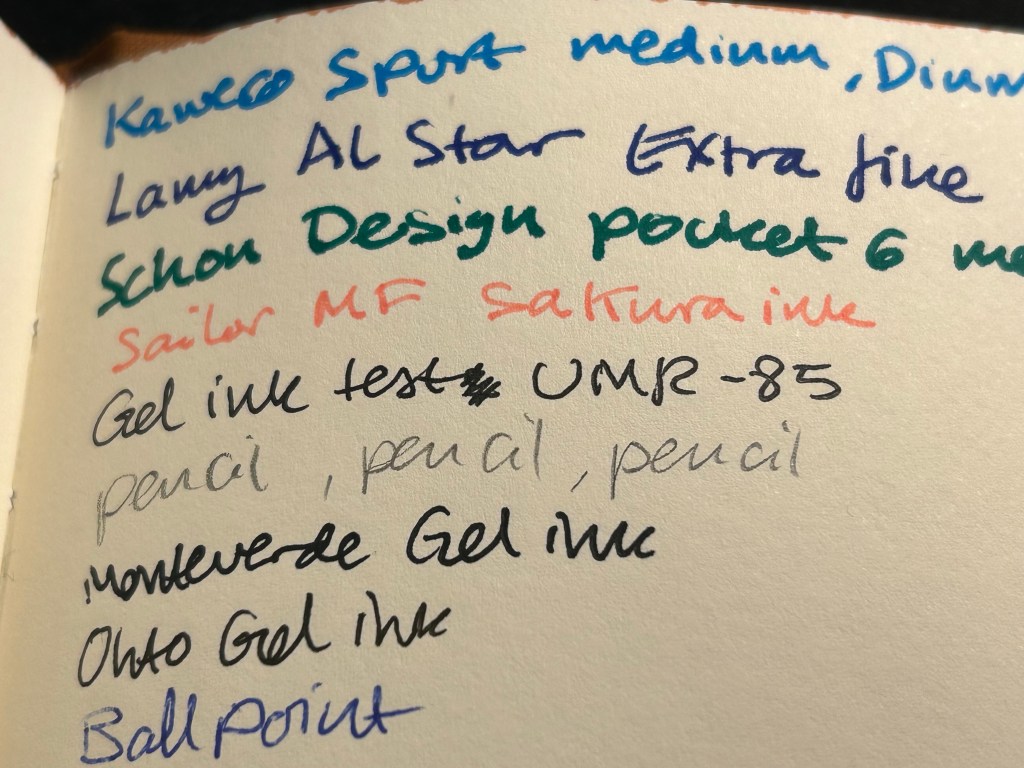 Kaweco Sport medium, Diam
Lamy AL Star Extra fine
Schon Design pocket 6 me
Sailor MF Sakura ink
Gel ink test UMR-85
pencil, pencil, pencil
Monteverde Gel ink
Ohto Gel ink
Ball point